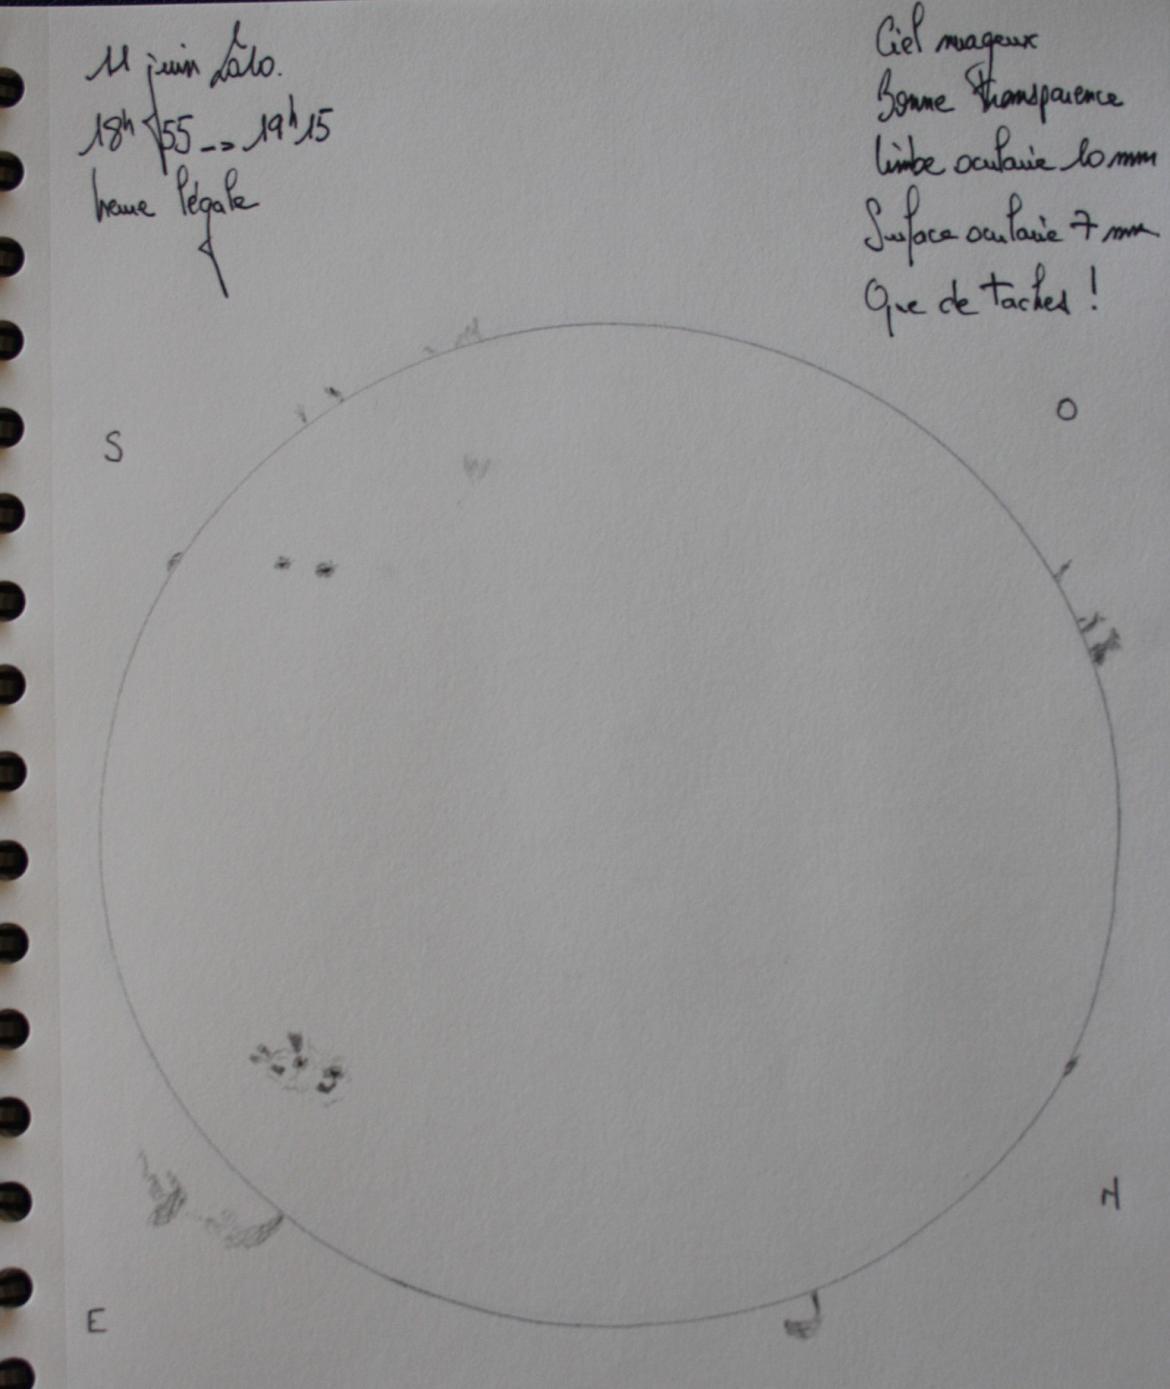 11 juin 2010.
18h55 -> 19h15
heure légale
Ciel nuageux
Bonne transparence
limbe oculaire 10 mm
Surface oculaire 7 mm
Que de taches !
S
O
N
E